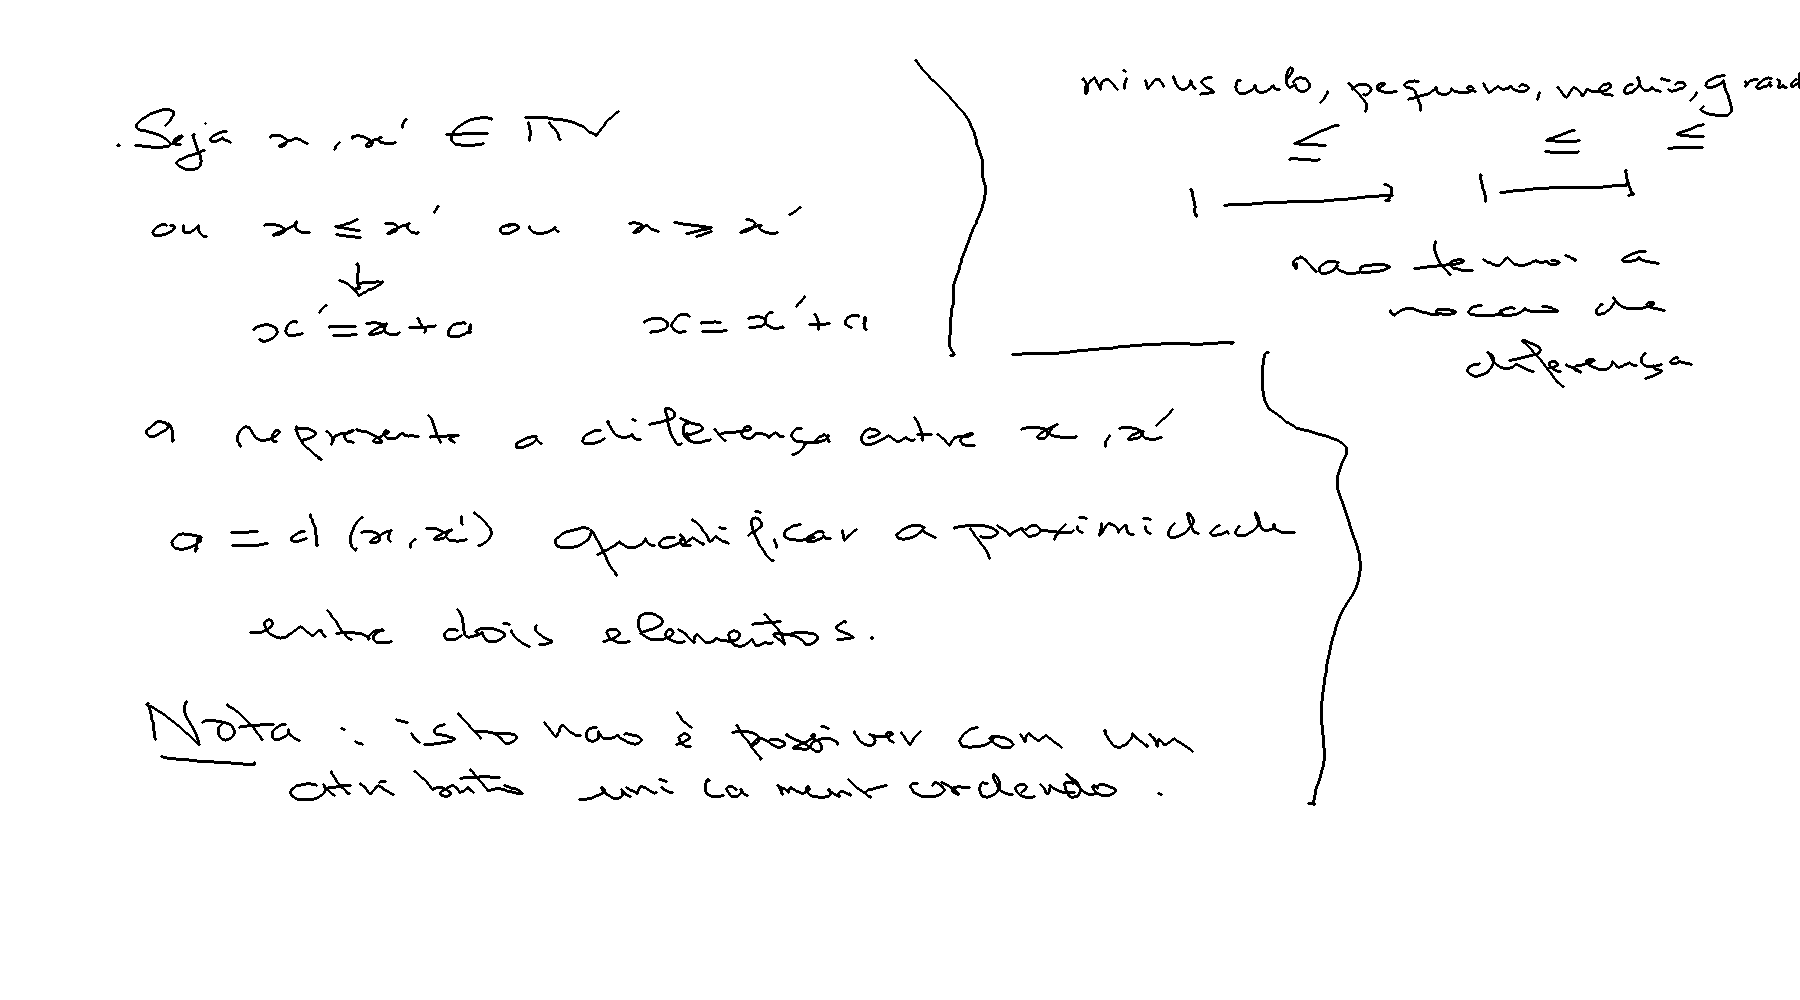 . Seja x, x' ∈ IN
ou x ≤ x' ou x ≥ x'
↓
x' = x + a x = x' + a
a representa a diferença entre x, x'
a = d (x, x') quantificar a proximidade
entre dois elementos.
Nota : isto nao è possiver com um
atributo unicament ordendo .
minusculo, pequeno, medio, grand
≤ ≤ ≤
nao temos a
nocao de
diferença